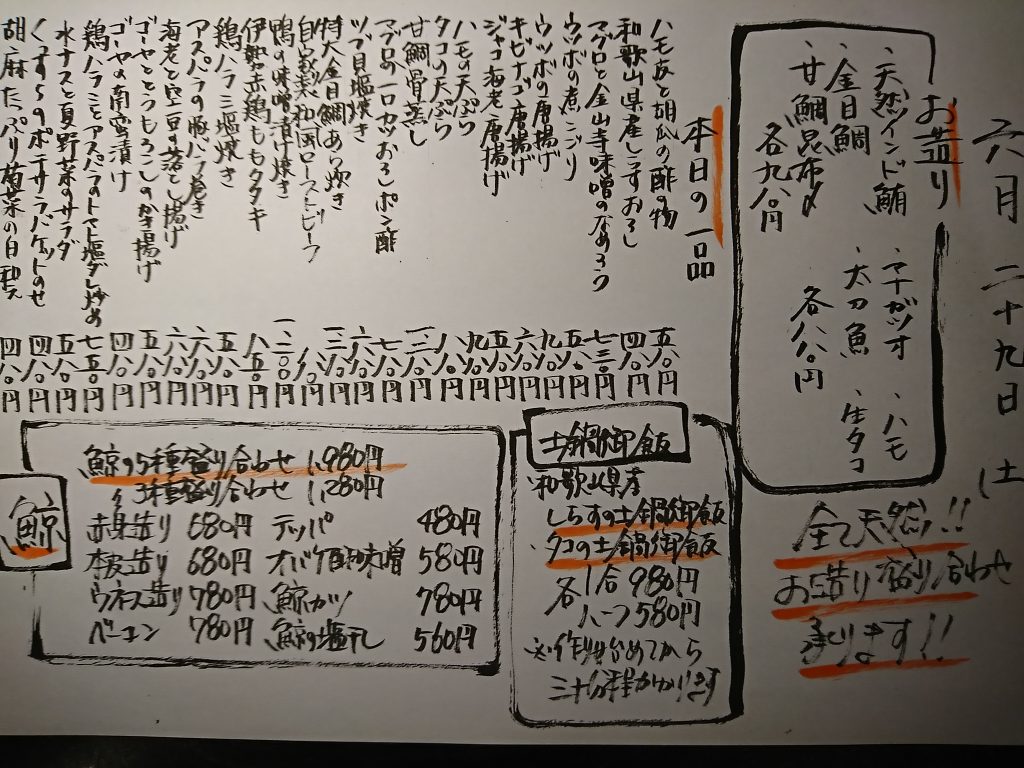 六月二十九日（土
お造り
・天然インド鮪 ・マナガツオ ・ハモ
・金目鯛 ・太刀魚 ・生タコ
・甘鯛昆布〆 各八八〇円
各九八〇円
全て天然!!
お造り盛り合わせ
承ります!!
本日の一品
ハモ皮と胡瓜の酢の物 五八〇円
和歌山県産しらすおろし 四八〇円
マグロと金山寺味噌のなめろう 七三〇円
ウツボの煮こごり 五八〇円
ウツボの唐揚げ 九八〇円
キビナゴ唐揚げ 六八〇円
ジャコ海老唐揚げ 五八〇円
ハモの天ぷら 九八〇円
タコの天ぷら 八八〇円
甘鯛骨蒸し
マグロの一口カツおろしポン酢 七八〇円
ツブ貝塩焼き 六八〇円
特大金目鯛あら炊き
自家製和風ローストビーフ
鴨の味噌漬け焼き
伊勢赤鶏ももタタキ 八五〇円
鶏ハラミ塩焼き 五八〇円
アスパラの豚バラ巻き 六八〇円
海老と空豆の落とし揚げ 六八〇円
ゴーヤととうもろこしのかき揚げ 五八〇円
ゴーヤの南蛮漬け 四八〇円
鶏ハラミとアスパラのトマト塩ダレ炒め 七五〇円
水ナスと夏野菜のサラダ 五八〇円
くすのポテサラバケットのせ 四八〇円
胡麻たっぷり菊菜の白和え 四八〇円
土鍋御飯
和歌山県産
しらすの土鍋御飯
タコの土鍋御飯
各1合 980円
ハーフ580円
※作り始めてから
三十分程かかります
鯨
鯨の5種盛り合わせ 1,980円
〃 3種盛り合わせ 1,280円
赤身造り 680円 テッパ 480円
本皮造り 680円 オバケ酢味噌 580円
ウネス造り 780円 鯨カツ 780円
ベーコン 780円 鯨の塩干し 560円